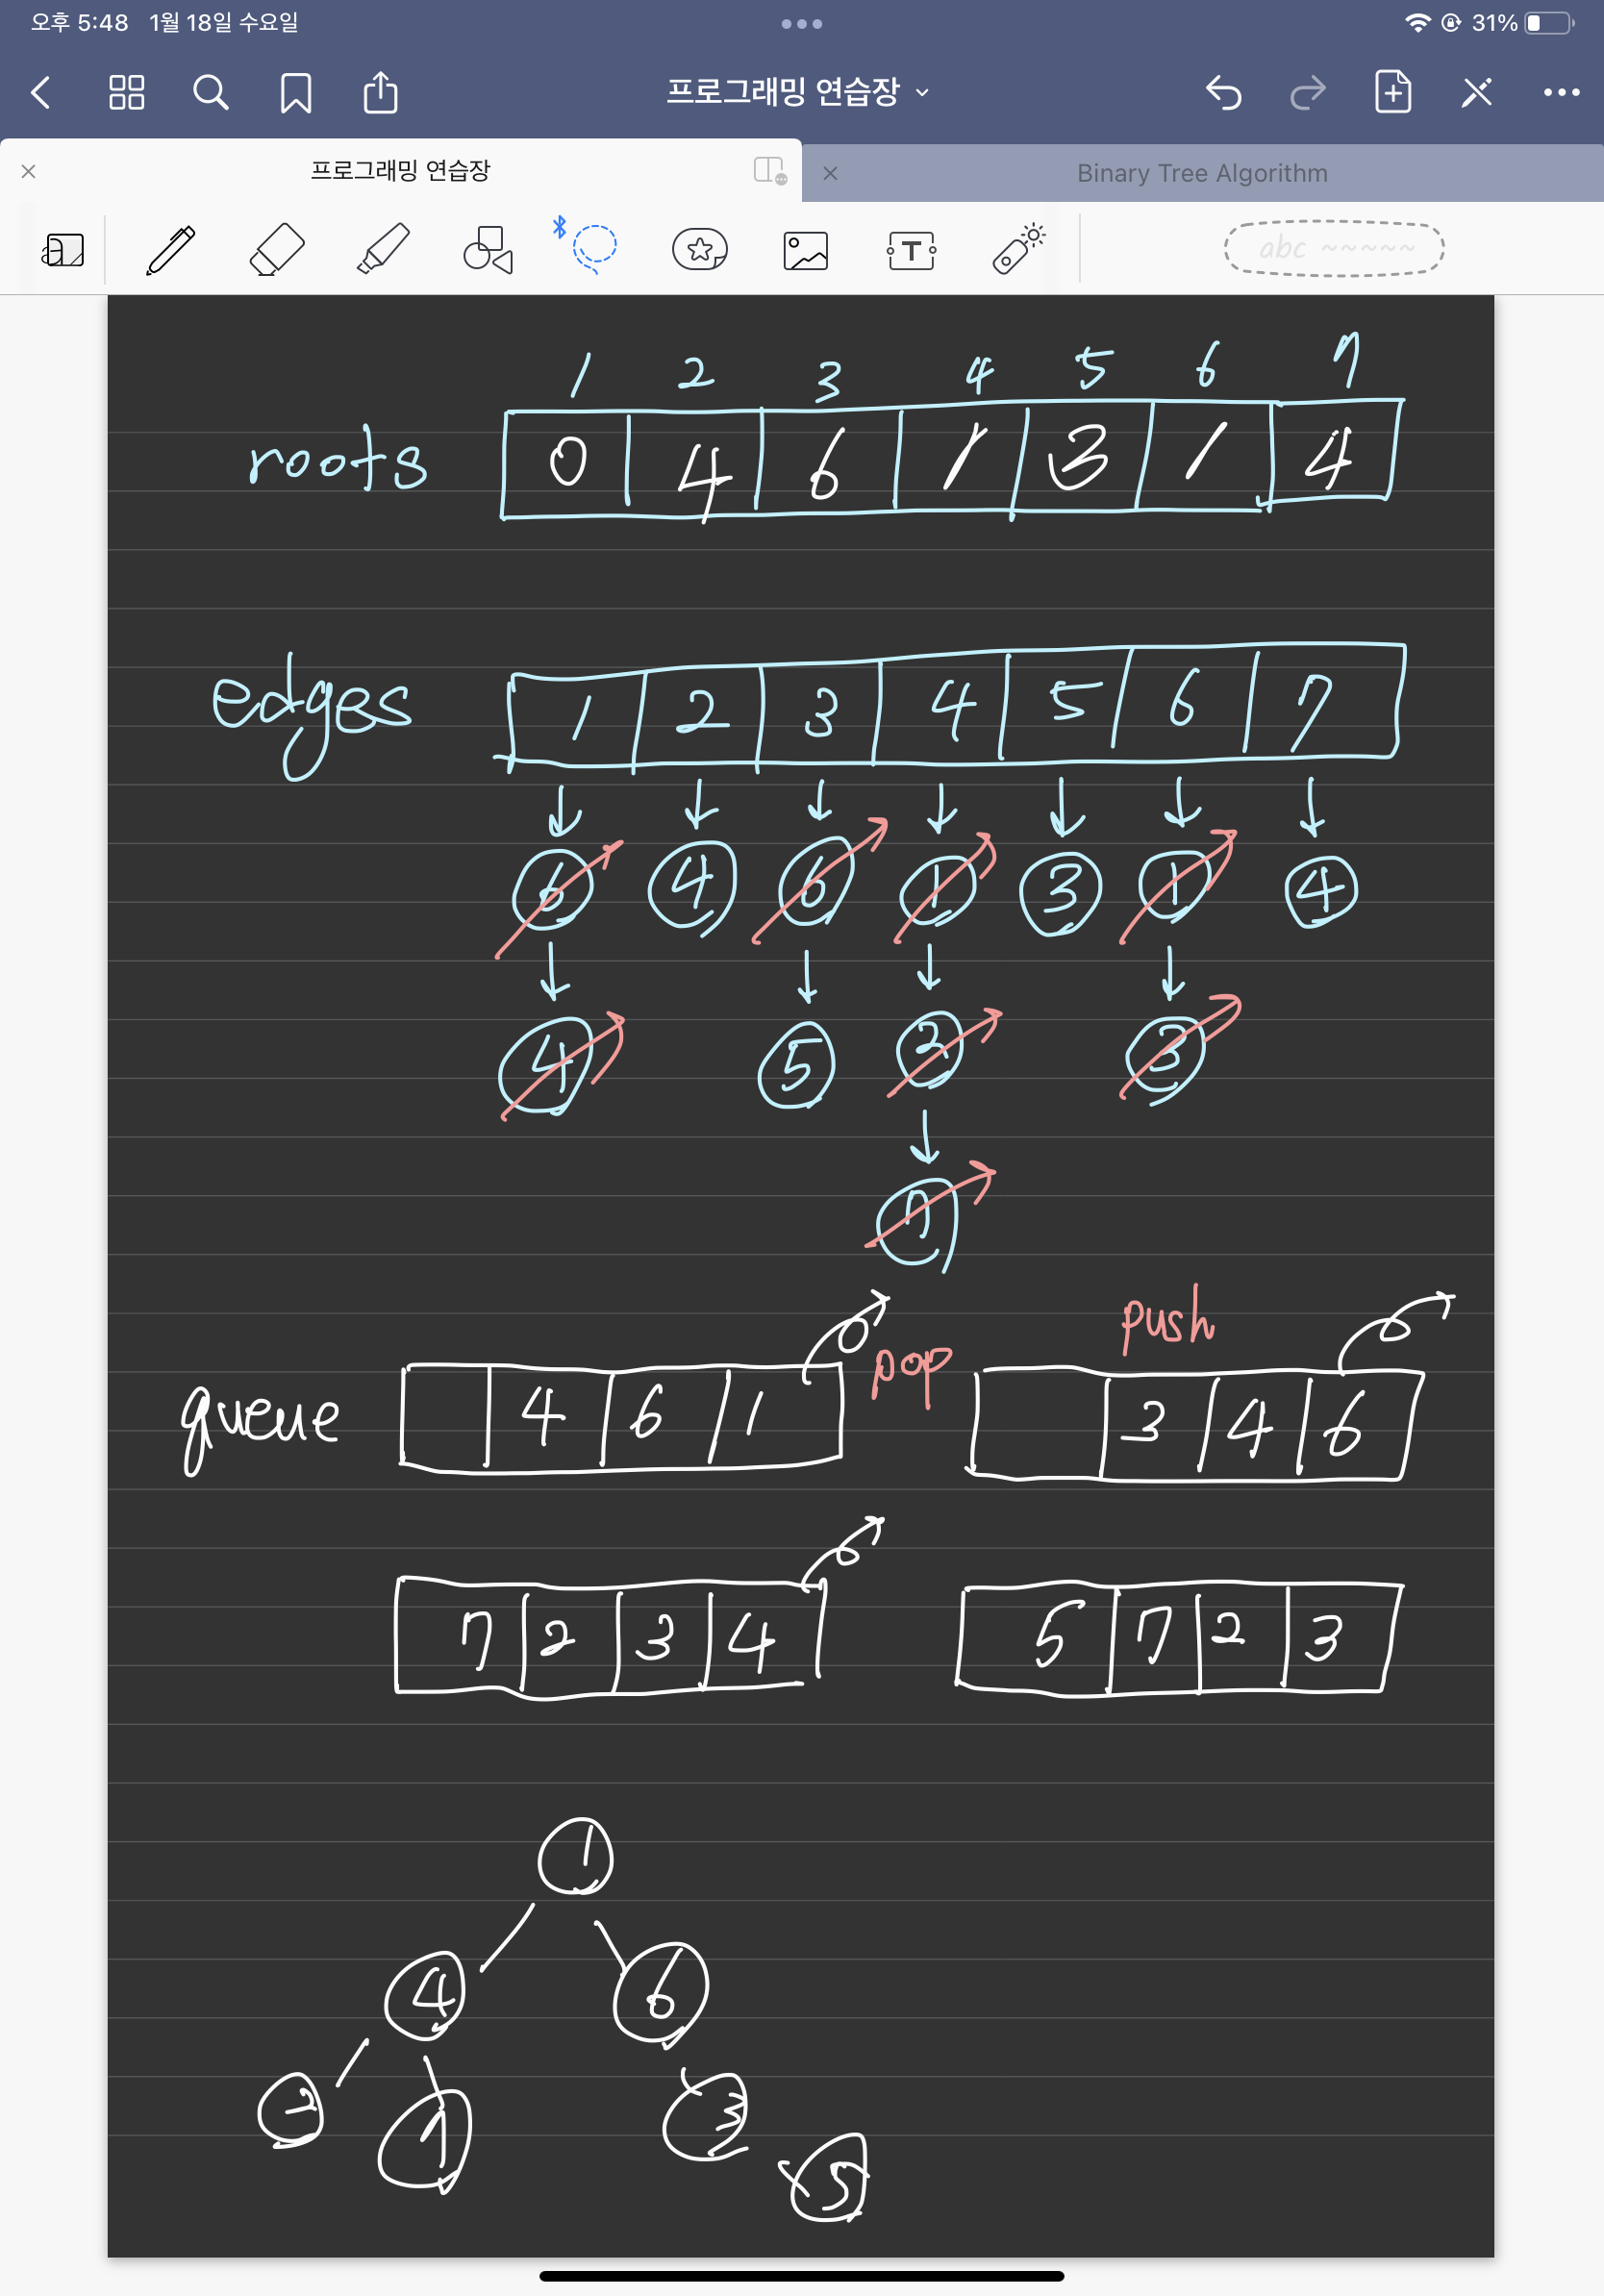 오후 5:48 1월 18일 수요일 31%
프로그래밍 연습장
프로그래밍 연습장 Binary Tree Algorithm
T abc ~~~~~
1 2 3 4 5 6 7
roots 0 4 6 1 3 1 4
edges 1 2 3 4 5 6 7
6 4 6 1 3 1 4
4 5 2 3
7
push
pop
queue 4 6 1 3 4 6
7 2 3 4 5 7 2 3
1
4 6
2 7 3
5